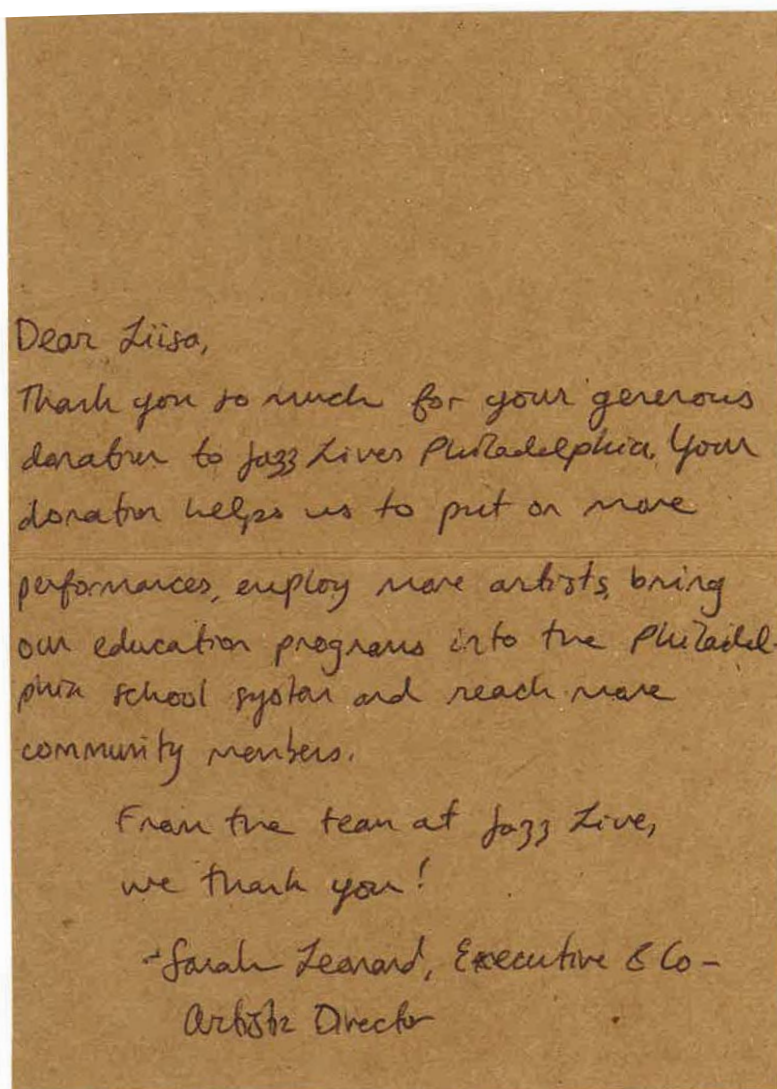 Dear Liisa,
Thank you so much for your generous
donation to Jazz Lives Philadelphia. Your
donation helps us to put on more
performances, employ more artists, bring
our education programs into the Philadel-
phia school system and reach more
community members.
From the team at Jazz Live,
we thank you!
-Sarah Leonard, Executive & Co-
Artistic Director